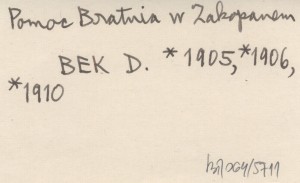 Pomoc Bratnia w Zakopanem
BEK D. *1905, *1906,
*1910